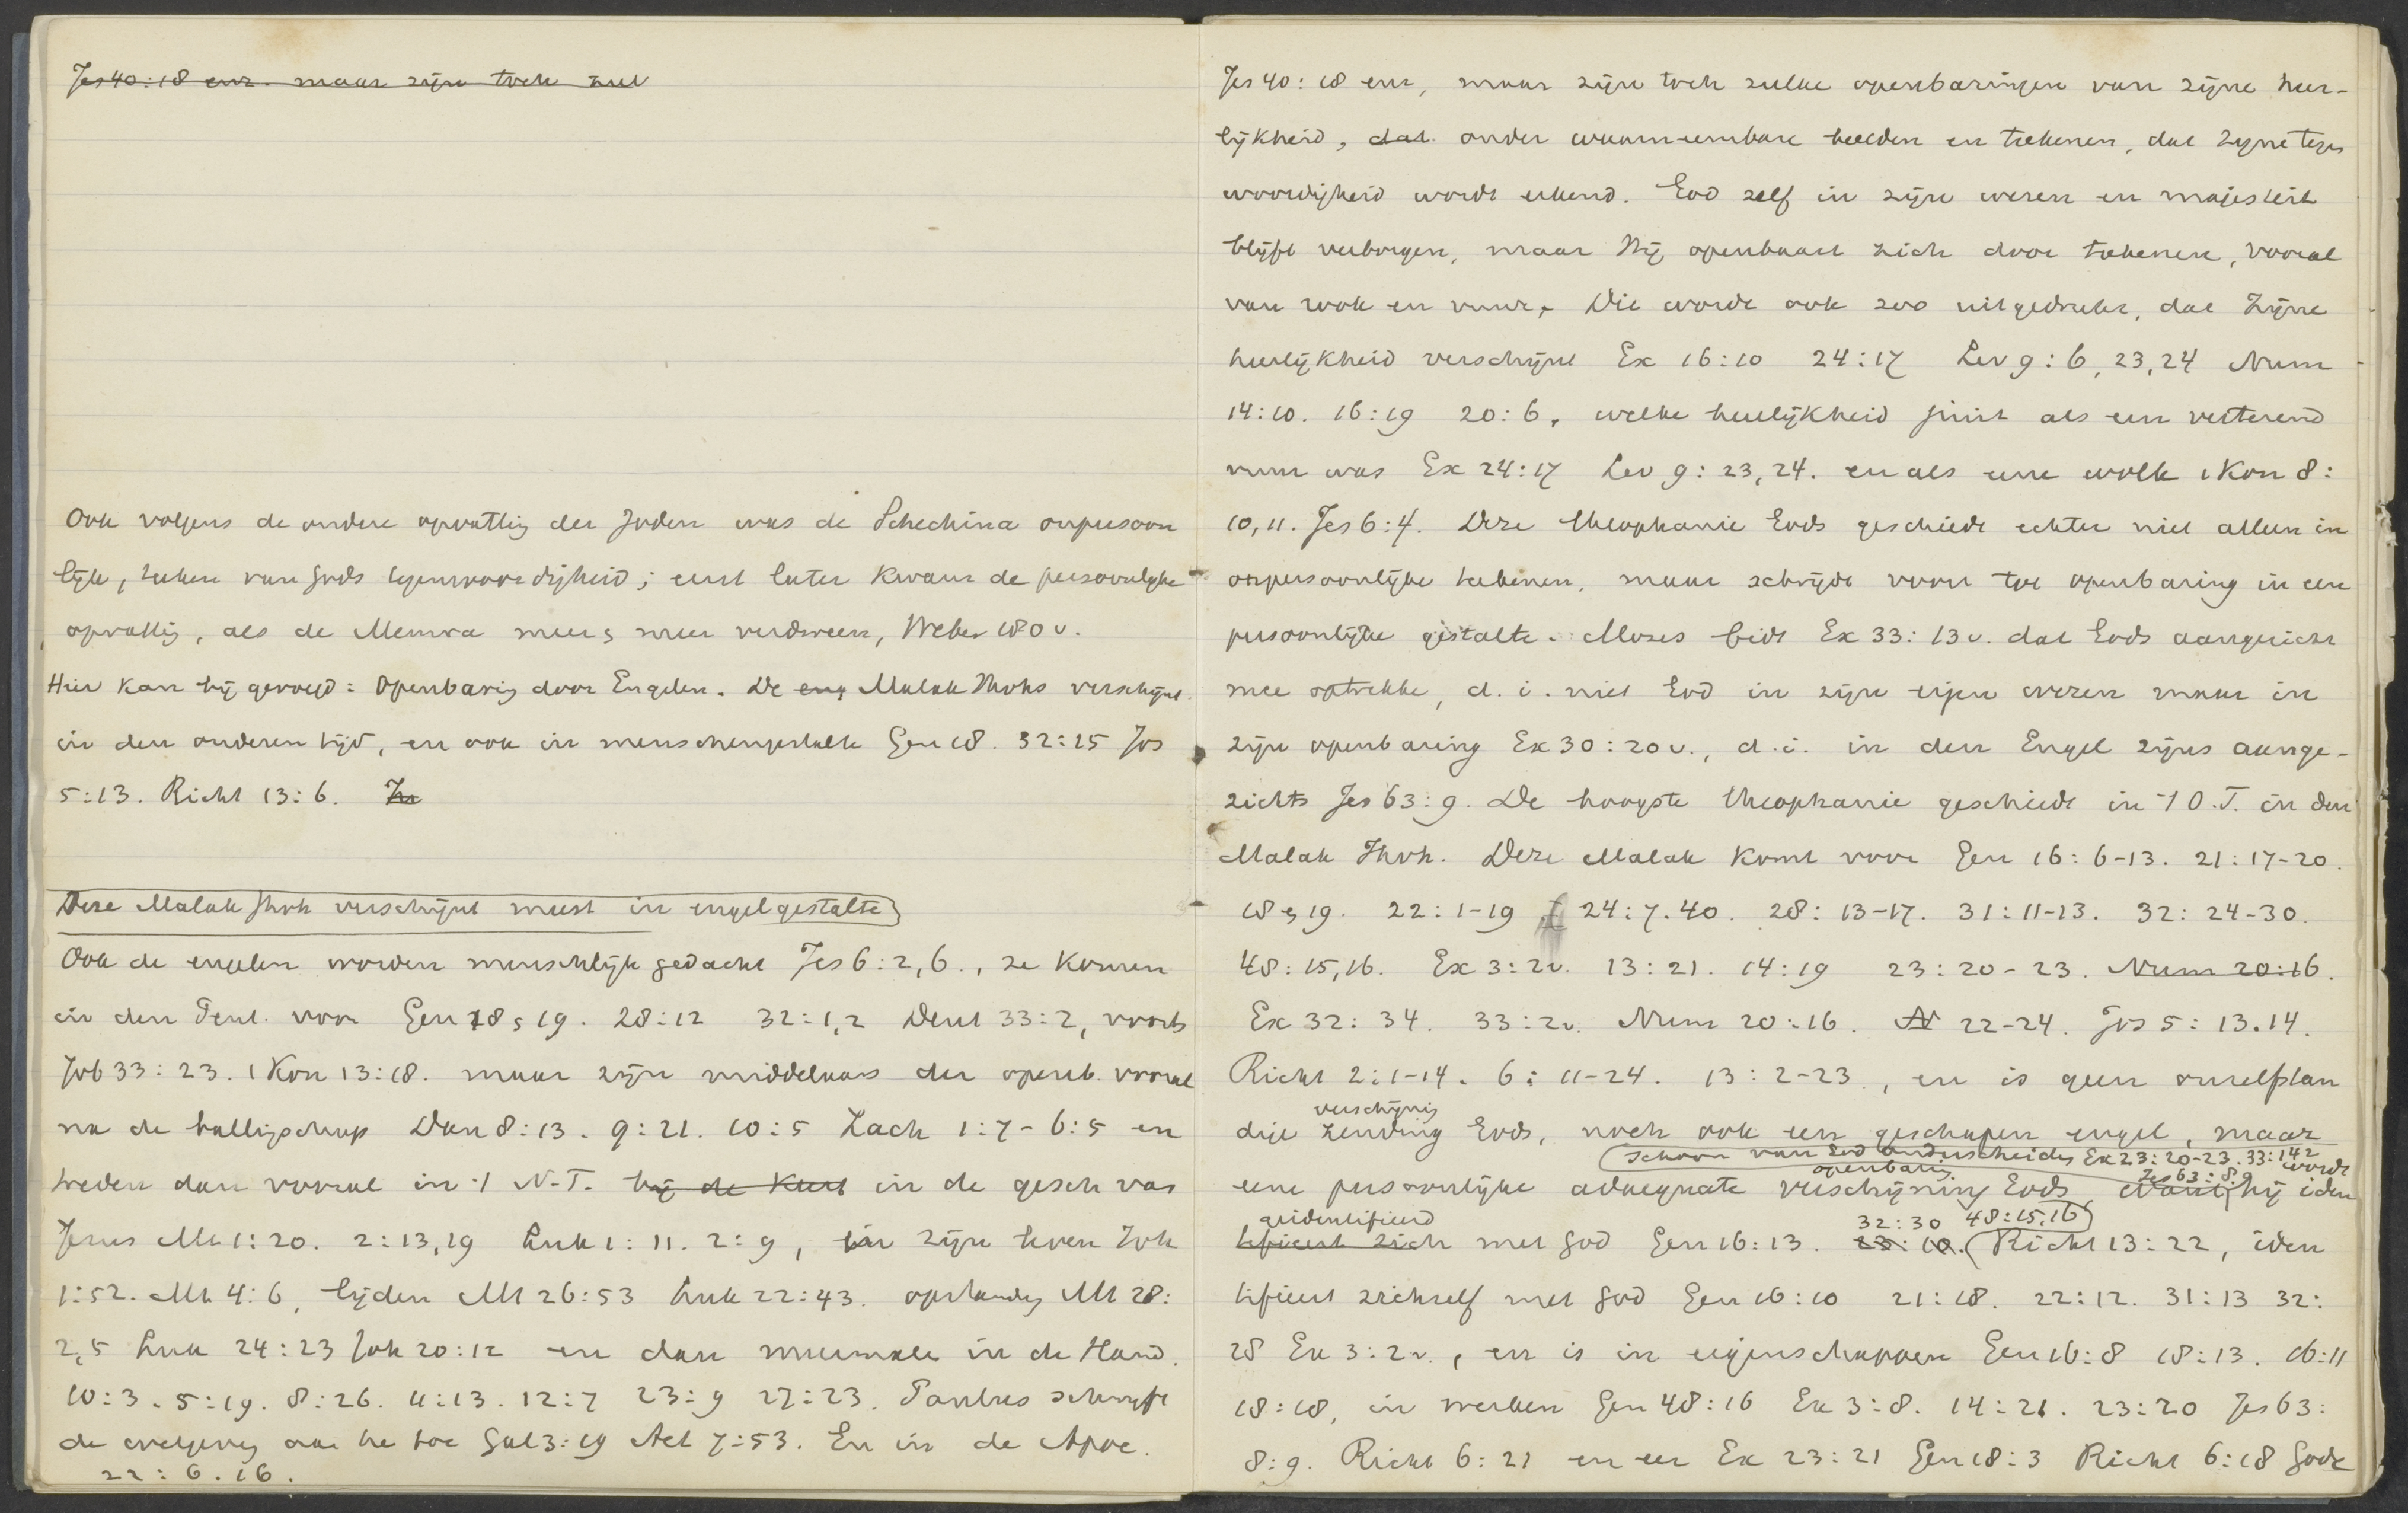 Jes 40:18 enz. maar zijn toch zul
Ook volgens de oudere opvatting der Joden was de Schechina onpersoon
lijk, teeken van Gods tegenwoordigheid; eerst later kwam de persoonlijke
opvatting, als de Memra meer & meer verdween, Weber 180 v.
Hier kan bij gevoegd: Openbaring door Engelen. De eng Malak Ihvhs verschijnt
in den ouderen tijd, en ook in menschengestalte Gen 18. 32:25 Jos
5:13. Richt 13:6.
Deze Malak Jhvh verschijnt meest in engelgestalte
Ook de engelen worden menschlijk gedacht Jes 6:2,6., ze komen
in den Pent. voor Gen 18 & 19. 28:12 32:1,2 Deut 33:2, voorts
Job 33:23. 1 Kon 13:18. maar zijn middelaars der openb. vooral
na de ballingschap Dan 8:13. 9:21. 10:5 Zach 1:7-6:5 en
treden dan vooral in 't N.T. bij de Kerst in de gesch van
Jezus Mt 1:20. 2:13,19 Luk 1:11. 2:9, in zijn leven Joh
1:52. Mt 4:6, lijden Mt 26:53 Luk 22:43. opstanding Mt 28:
2,5 Luk 24:23 Joh 20:12 en dan meermalen in de Hand.
10:3. 5:19. 8:26. 11:13. 12:7 23:9 27:23. Paulus schrijft
de wetgeving aan he toe Gal 3:19 Act 7:53. En in de Apoc.
22:6.16.
Jes 40:18 enz, maar zijn toch zulke openbaringen van zijne heer-
lijkheid, dat onder waarneembare beelden en teekenen, dat zijne tegen
woordigheid wordt erkend. God zelf in zijn wezen en majesteit
blijft verborgen, maar Hij openbaart zich door teekenen, vooral
van wolk en vuur. Dit wordt ook zoo uitgedrukt, dat Zijne
heerlijkheid verschijnt Ex 16:10 24:17 Lev 9:6,23,24 Num
14:10. 16:19 20:6, welke heerlijkheid juist als een verterend
vuur was Ex 24:17 Lev 9:23,24. en als eene wolk 1 Kon 8:
10,11. Jes 6:4. Deze theophanie Gods geschiedt echter niet alleen in
onpersoonlijke teekenen, maar schrijdt voort tot openbaring in eene
persoonlijke gestalte. Mozes bidt Ex 33:13v. dat Gods aangezicht
mee optrekke, d.i. niet God in zijn eigen wezen maar in
zijn openbaring Ex 30:20v., d.i. in den Engel zijns aange-
zichts Jes 63:9. De hoogste theophanie geschiedt in 't O.T. in den
Malak Jhvh. Deze Malak komt voor Gen 16:6-13. 21:17-20.
18 & 19. 22:1-19 24:7.40. 28:13-17. 31:11-13. 32:24-30.
48:15,16. Ex 3:2v. 13:21. 14:19 23:20-23. Num 20:16.
Ex 32:34. 33:2v. Num 20:16. N 22-24. Jos 5:13.14.
Richt 2:1-14. 6:11-24. 13:2-23, en is geen onzelfstan
verschijning
dige zending Gods, noch ook een geschapen engel, maar
schoon van God onderscheiden Ex 23:20-23. 33:14 2
openbaring Jes 63:8.9 wordt
eene persoonlijke adaequate verschijning Gods, want hij iden
geidentifieerd 32:30 48:15.16
tifieert zich met God Gen 16:13. 28:10. Richt 13:22, iden
tifieert zichzelf met God Gen 16:10 21:18. 22:12. 31:13 32:
28 Ex 3:2v., en is in eigenschappen Gen 16:8 18:13. 16:11
18:18, in werken Gen 48:16 Ex 3:8. 14:21. 23:20 Jes 63:
8:9. Richt 6:21 en eer Ex 23:21 Gen 18:3 Richt 6:18 Gode